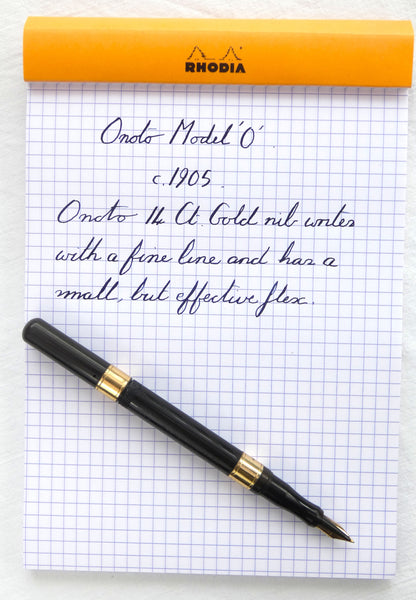 RHODIA
Onoto Model 'O'.
c.1905.
Onoto 14 Ct. Gold nib writes
with a fine line and has a
small, but effective flex.